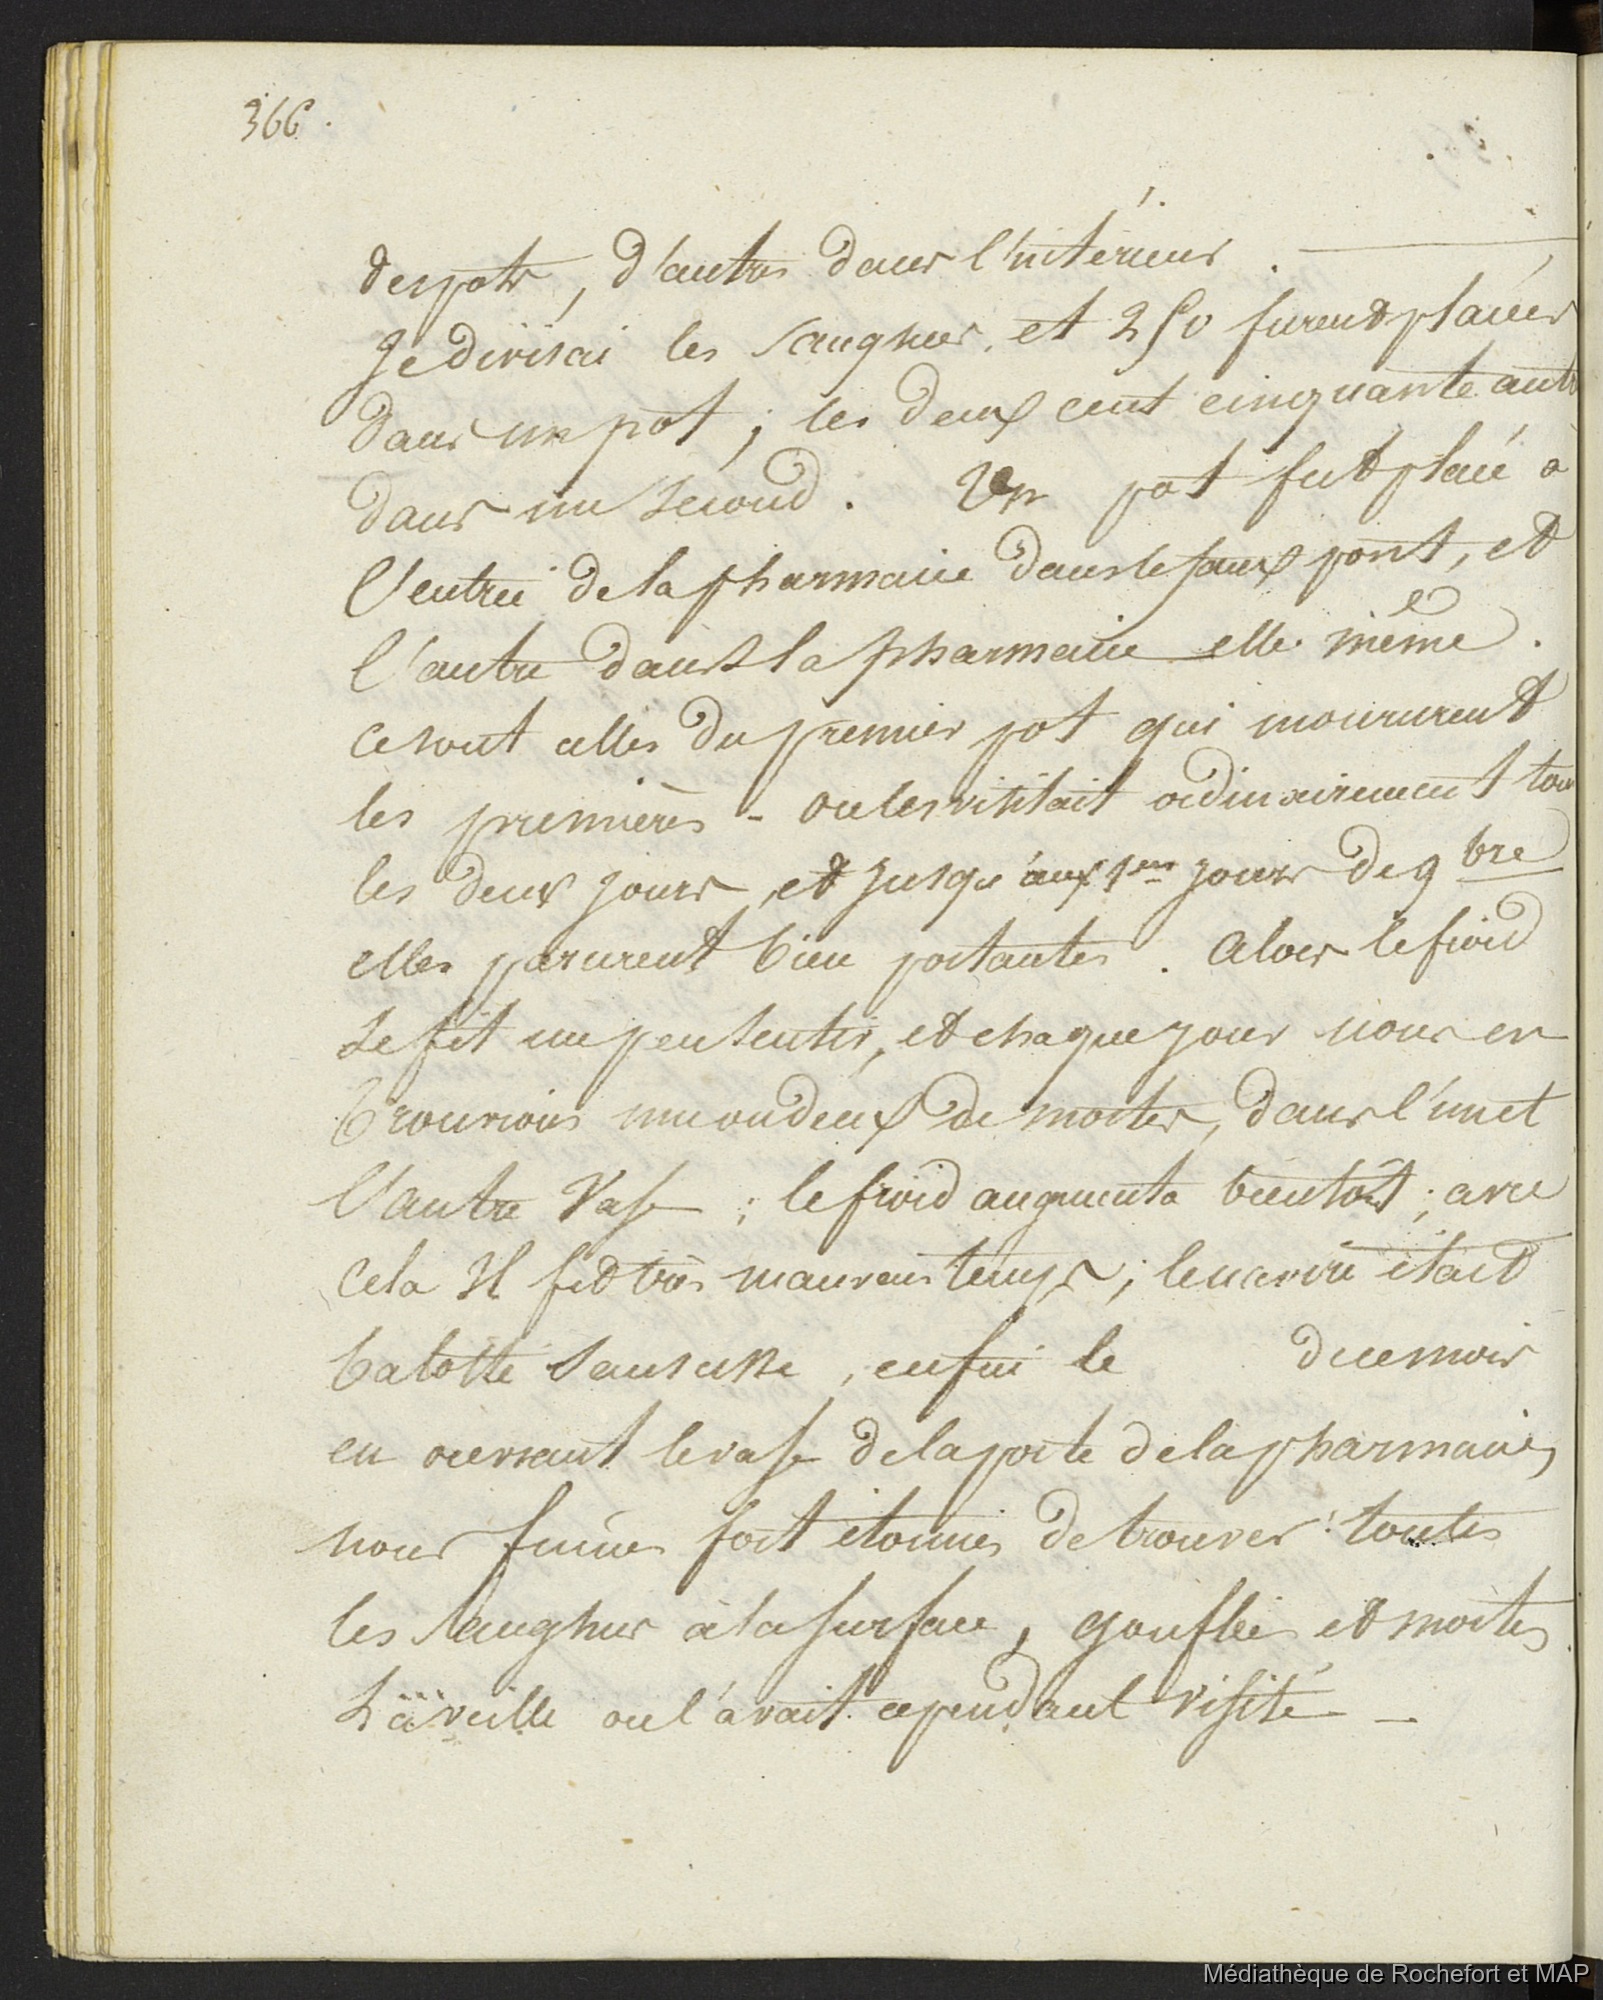 366.
des pots, d'autres dans l'intérieur.
Je divisai les sangsues, et 250 furent placées
dans un pot ; les deux cent cinquante autr
dans un second. Un pot fut placé à
l'entrée de la pharmacie dans le faux pont, et
l'autre dans la pharmacie elle même.
ce sont celles du premier pot qui moururent
les premières - on les visitait ordinairement tous
les deux jours, et jusqu'aux 1ers jours de 9bre
elles parurent bien portantes. Alors le froid
se fit un peu sentir, et chaque jour nous en
trouvions une ou deux de mortes, dans l'un et
l'autre vase ; le froid augmenta bientôt ; avec
cela Il fit très mauvais temps ; le navire était
balotté sans cesse, enfin le de ce mois
en ouvrant le vase de la porte de la pharmacie,
nous fumes fort étonnés de trouver toutes
les sangsues à la surface, gonflées et mortes
La veille on l'avait cependant visité -
Médiathèque de Rochefort et MAP